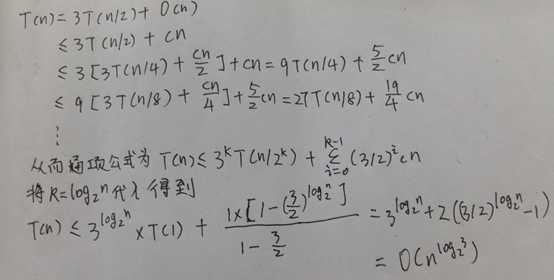 T(n) = 3T(n/2) + O(n)
≤ 3T(n/2) + cn
≤ 3[3T(n/4) + cn/2] + cn = 9T(n/4) + 5/2 cn
≤ 9[3T(n/8) + cn/4] + 5/2 cn = 27T(n/8) + 19/4 cn
⋮
从而通项公式为 T(n) ≤ 3^k T(n/2^k) + ∑_{i=0}^{k-1} (3/2)^i cn
将 k = log₂n 代入得到
T(n) ≤ 3^{log₂n} × T(1) + 1×[1-(3/2)^{log₂n}] / (1 - 3/2) = 3^{log₂n} + 2((3/2)^{log₂n} - 1)
= O(n^{log₂3})